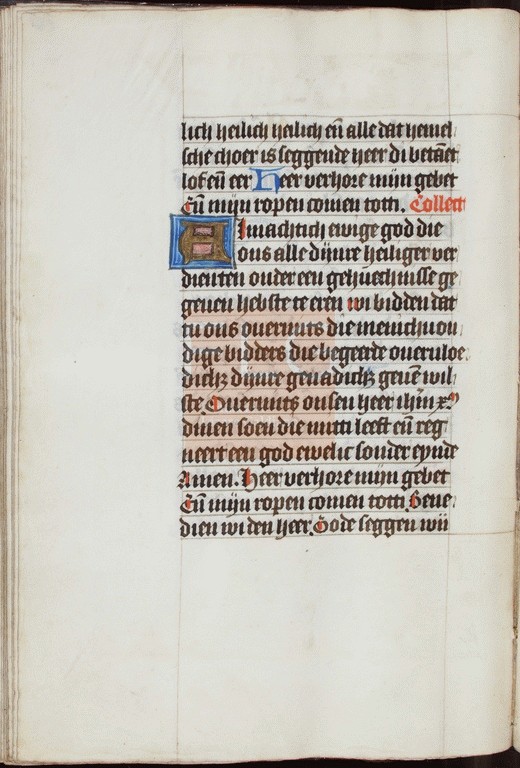 lich heilich heilich eñ alle dat hemel
sche choer is seggende heer di betaēt
lof eñ eer Heer verhore mijn gebet
Eñ mijn ropen comen totti. Collect
Almachtich ewige god die
ons alle dijnre heiliger ver
dienten onder een gehuechnisse ge
geuen hebste te eren wi bidden dat
tu ons ouermits die menichuou
dige bidders die begeerde oueruloe
dich⁊ dijnre genadich⁊ geuē wil
ste Ouermits onsen heer ihm̄ xp̄
dinen soen die mitti leeft eñ reg
neert een god ewelic sonder eynde
Amen. Heer verhore mijn gebet
Eñ mijn ropen comen totti. Bene
dien wi den heer. Gode seggen wii